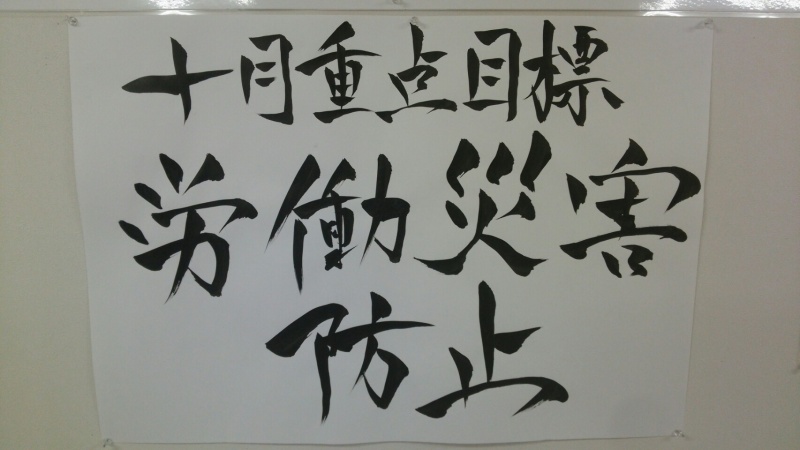 十月重点目標
労働災害
防止